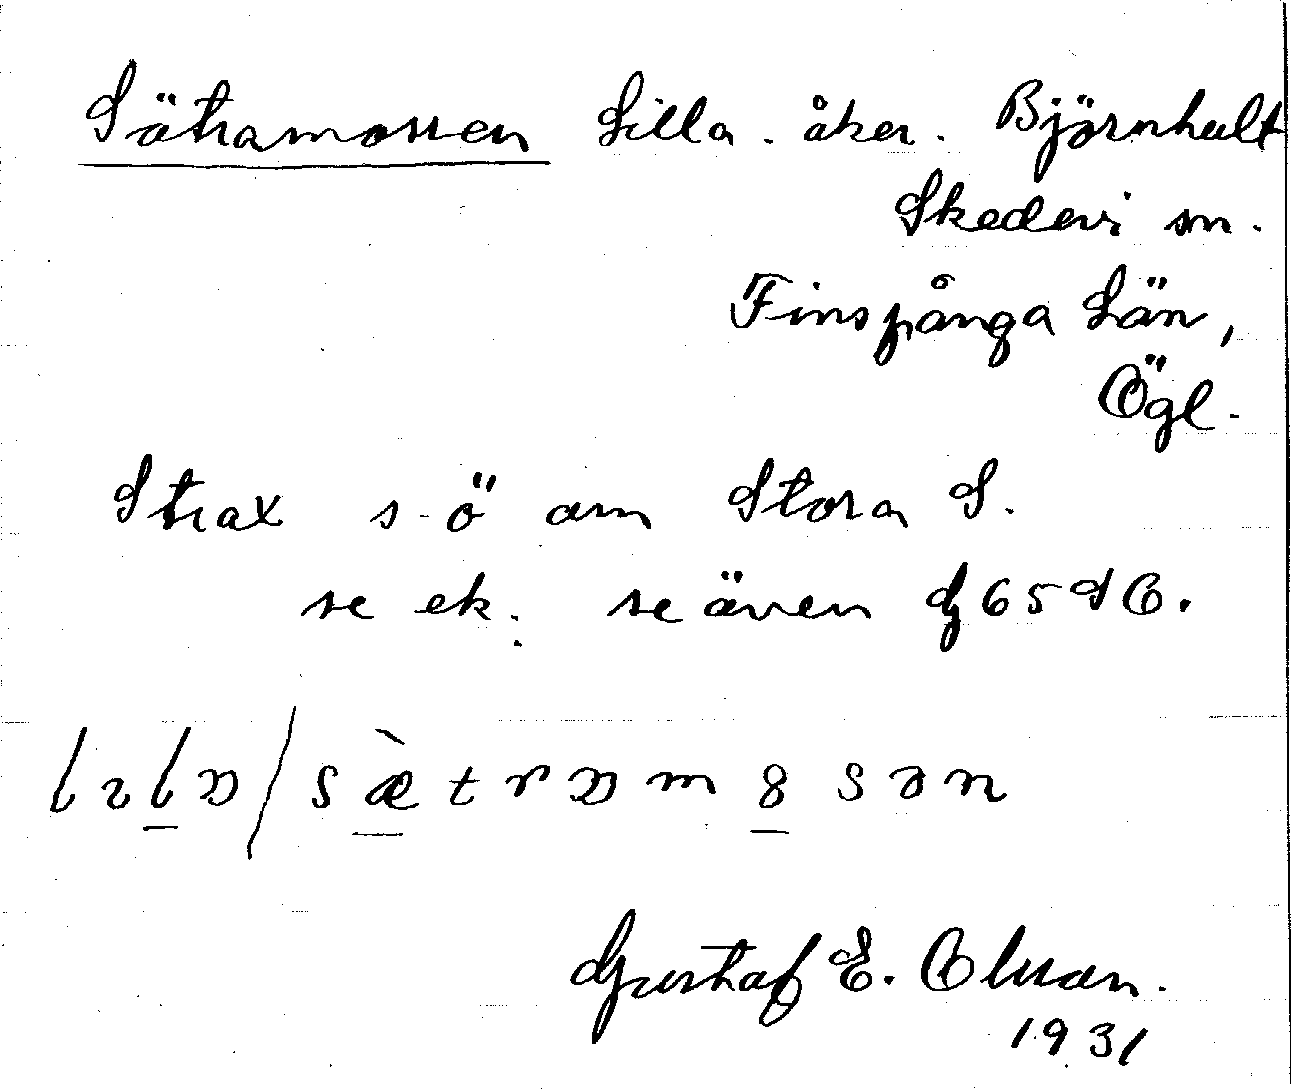 Sätramossen Lilla. åker. Björnhult
Skedevi sn.
Finspånga Län,
Ögl.
Strax s-ö om Stora S.
se ek. se även G65SO.
Gustaf E. Olsson.
1931